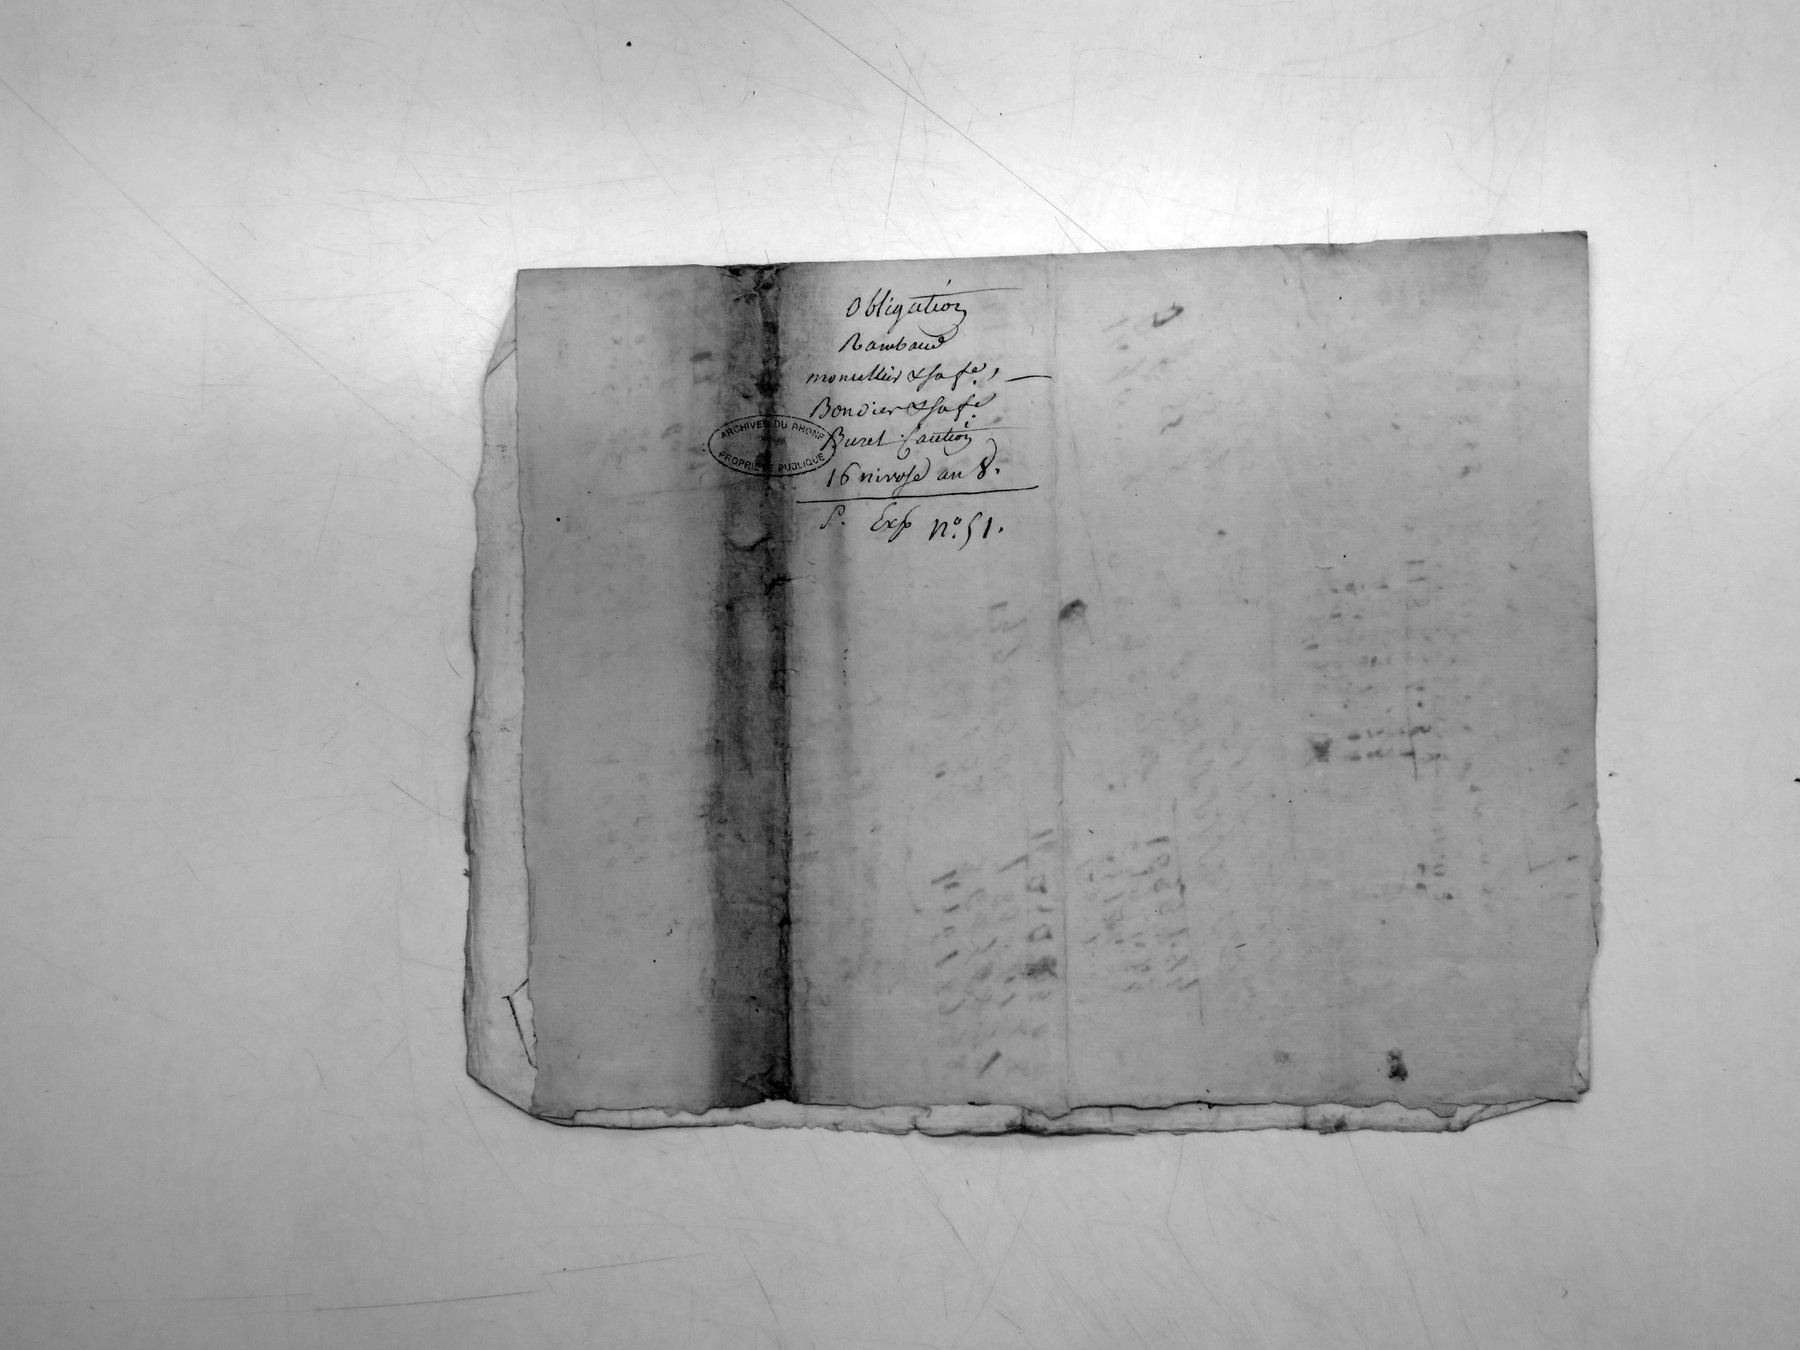 Obligation
Rambaud
moncellier & sa fe, —
Bondier & sa fe
Buret Caution
16 nivose an 8.
P. Exp n.º 51.
ARCHIVES DU RHONE
PROPRIETE PUBLIQUE